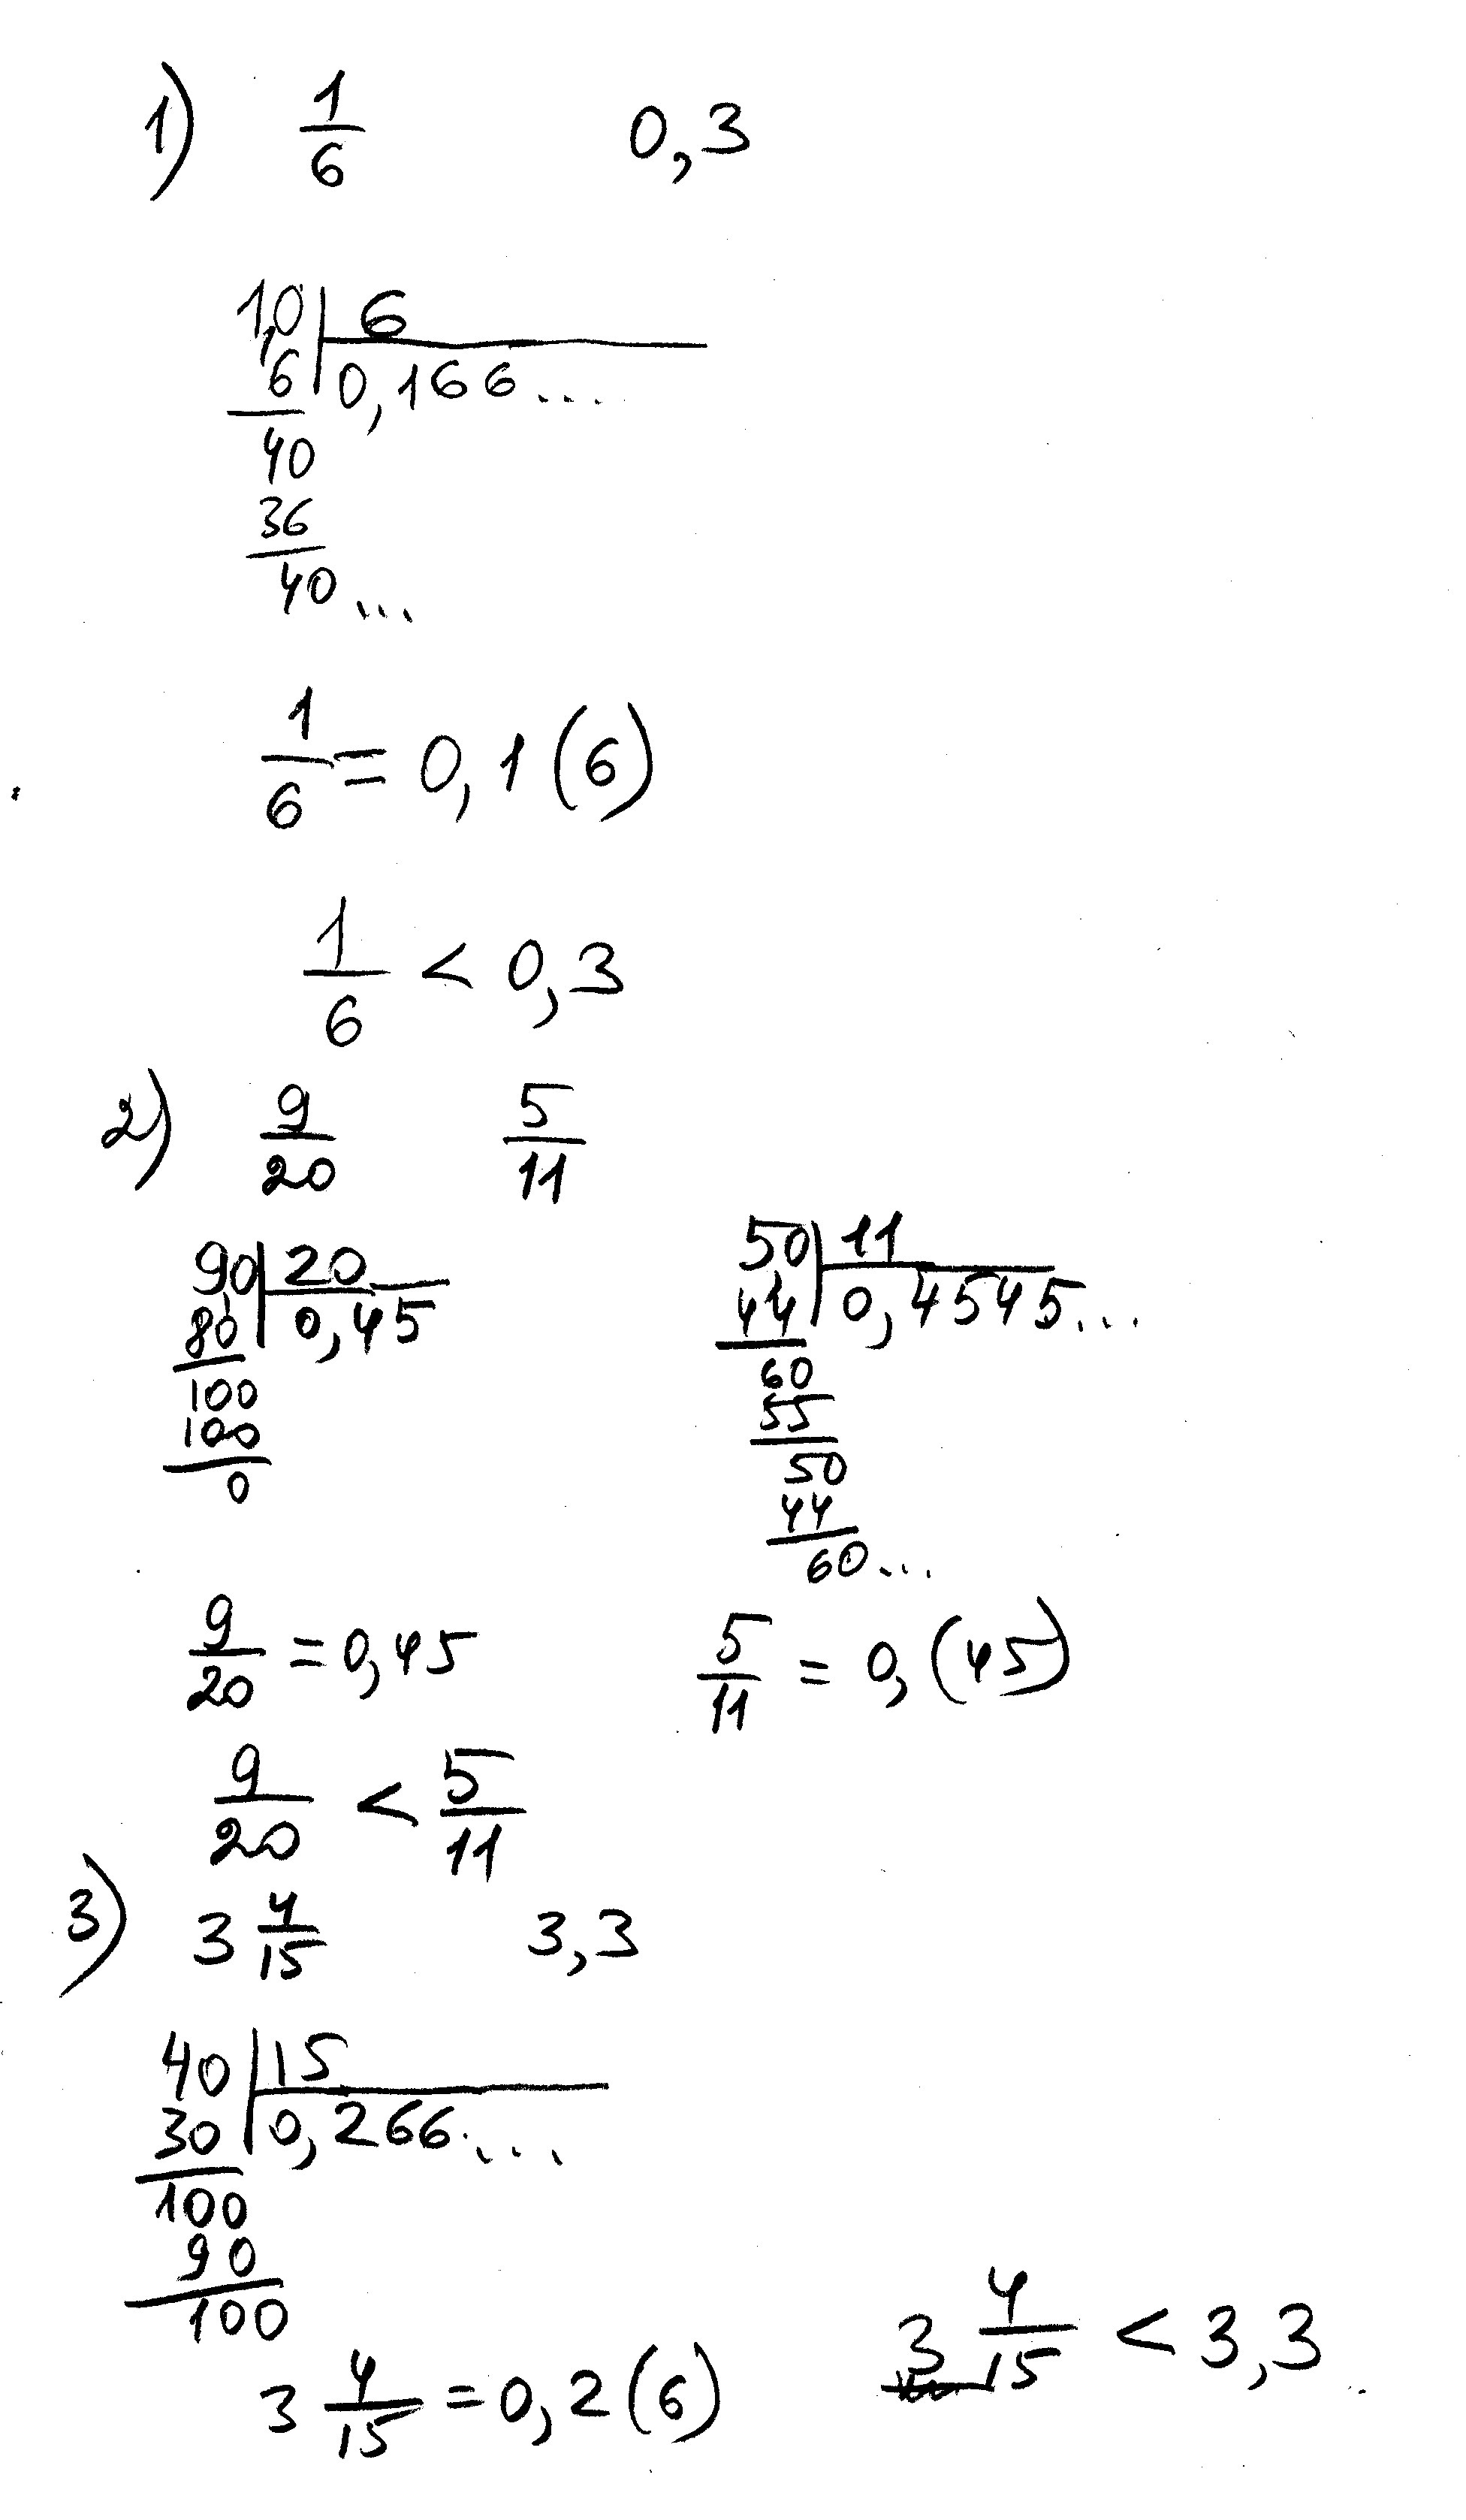 1) 1/6 0,3
1,0 | 6
6 | 0,166...
40
36
40...
1/6 = 0,1(6)
1/6 < 0,3
2) 9/20 5/11
9,0 | 20
80 | 0,45
100
100
0
50 | 11
44 | 0,4545...
60
55
50
44
60...
9/20 = 0,45 5/11 = 0,(45)
9/20 < 5/11
3) 3 4/15 3,3
40 | 15
30 | 0,266...
100
90
100
3 4/15 = 0,2(6) 3 4/15 < 3,3